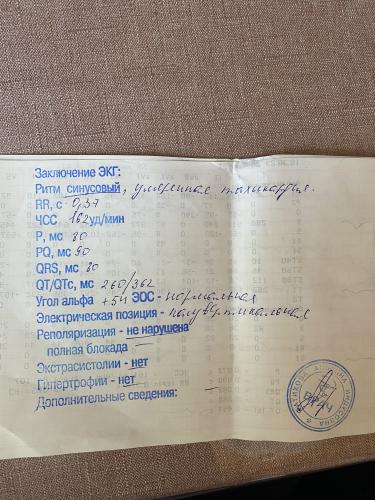 Заключение ЭКГ:
Ритм синусовый, умеренная тахикардия.
RR, с 0,37
ЧСС 162 уд/мин
P, мс 80
PQ, мс 90
QRS, мс 80
QT/QTc, мс 260/362
Угол альфа +54 ЭОС - нормальная
Электрическая позиция - полувертикальная
Реполяризация - не нарушена
полная блокада —
Экстрасистолии - нет
Гипертрофии - нет
Дополнительные сведения: —